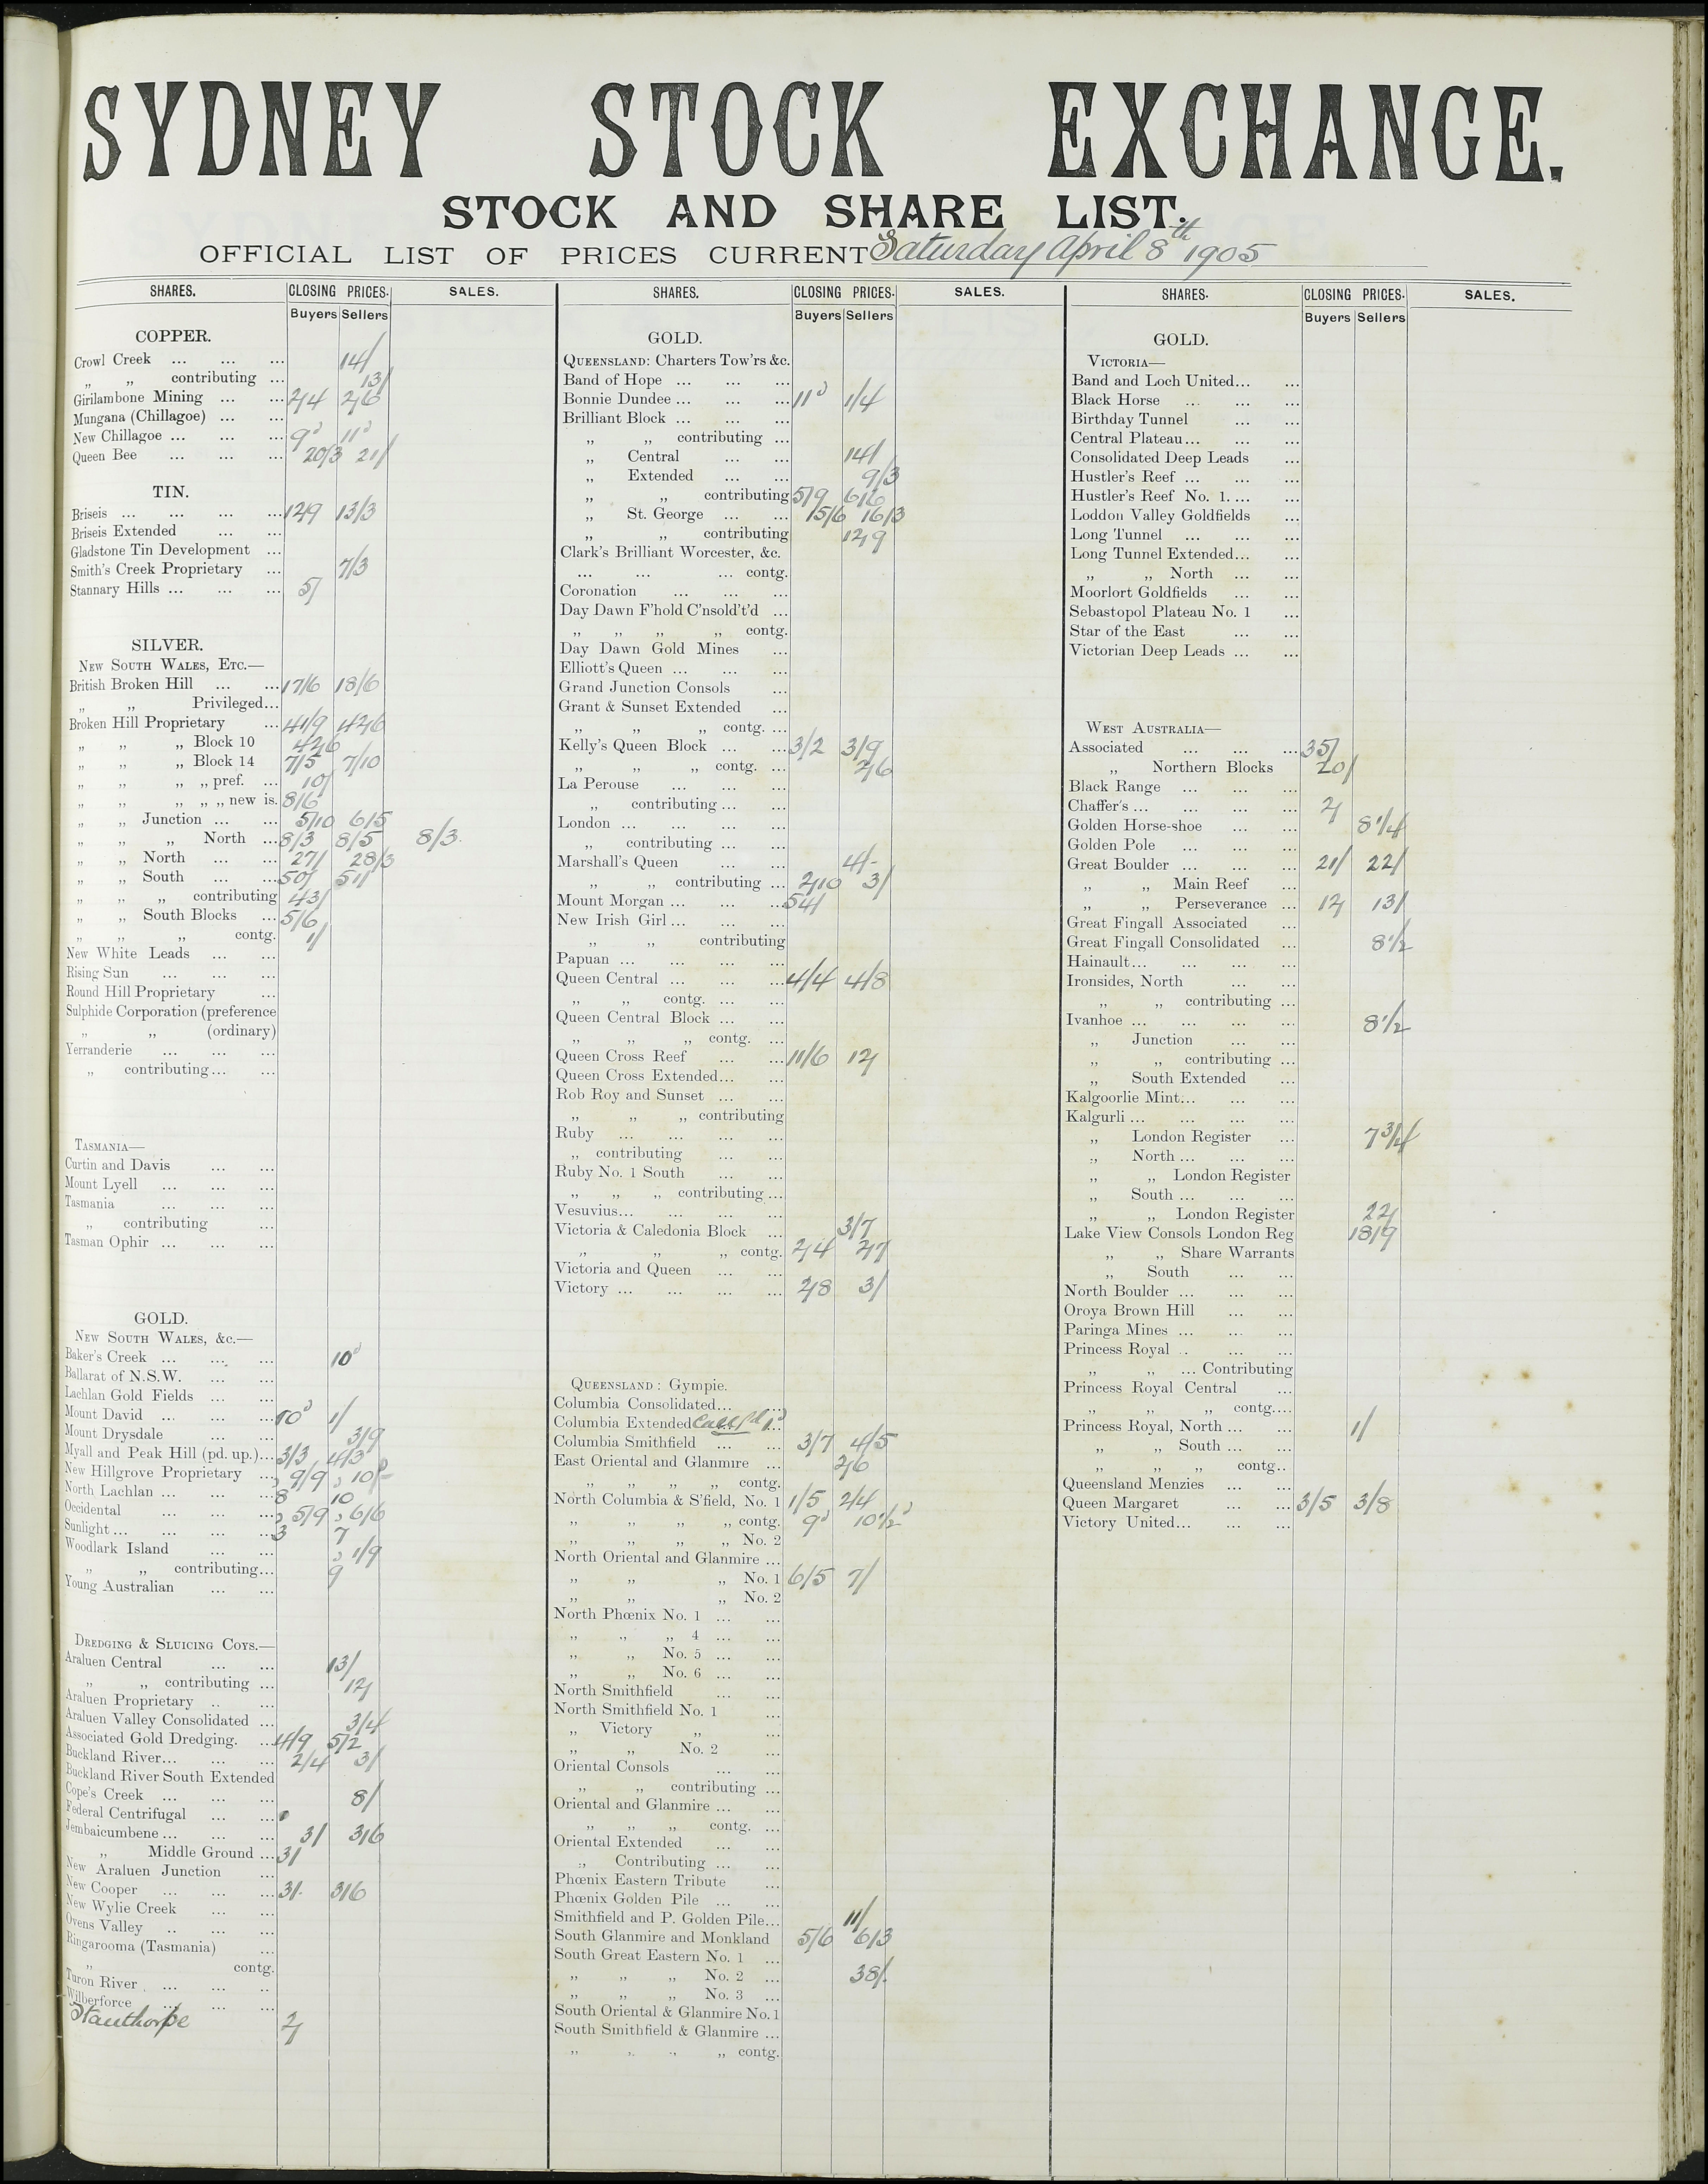 SYDNEY STOCK EXCHANGE.
STOCK AND SHARE LIST.
OFFICIAL LIST OF PRICES CURRENT Saturday April 8th 1905
SHARES. CLOSING PRICES. SALES.
Buyers Sellers
COPPER.
Crowl Creek ... ... ... 14/
„ „ contributing ... 13/
Girilambone Mining ... ... 2/4 2/6
Mungana (Chillagoe) ... ...
New Chillagoe ... ... ... 9d 11d
Queen Bee ... ... ... 20/3 21/
TIN.
Briseis ... ... ... ... 12/9 13/3
Briseis Extended ... ...
Gladstone Tin Development ...
Smith's Creek Proprietary ... 7/3
Stannary Hills ... ... ... 5/
SILVER.
NEW SOUTH WALES, ETC.—
British Broken Hill ... ... 17/6 18/6
„ „ Privileged...
Broken Hill Proprietary ... 41/9 42/6
„ „ „ Block 10 42/6
„ „ „ Block 14 7/5 7/10
„ „ „ „ pref. ... 10/
„ „ „ „ „ new is. 8/6
„ „ Junction ... ... 5/10 6/5
„ „ „ North ... 8/3 8/5 8/3.
„ „ North ... ... 27/ 28/3
„ „ South ... ... 50/ 51/
„ „ „ contributing 43/
„ „ South Blocks ... 5/6
„ „ „ contg. 1/
New White Leads ... ...
Rising Sun ... ... ...
Round Hill Proprietary ...
Sulphide Corporation (preference
„ „ (ordinary)
Yerranderie ... ... ...
„ contributing ... ...
TASMANIA—
Curtin and Davis ... ...
Mount Lyell ... ... ...
Tasmania ... ... ...
„ contributing ...
Tasman Ophir ... ... ...
GOLD.
NEW SOUTH WALES, &c.—
Baker's Creek ... ... ... 10d
Ballarat of N.S.W. ... ...
Lachlan Gold Fields ... ...
Mount David ... ... ... 10d 1/
Mount Drysdale ... ... 3/9
Myall and Peak Hill (pd. up.)... 3/3 4/3
New Hillgrove Proprietary ... 9/9 10/-
North Lachlan ... ... ... 8d 10d
Occidental ... ... ... 5/9 6/6
Sunlight ... ... ... ... 3d 7d
Woodlark Island ... ... 1/9
„ „ contributing... 9d
Young Australian ... ...
DREDGING & SLUICING COYS.—
Araluen Central ... ... 13/
„ „ contributing ... 12/
Araluen Proprietary .. ...
Araluen Valley Consolidated ... 3/4
Associated Gold Dredging. ... 4/9 5/2
Buckland River... ... ... 2/4 3/
Buckland River South Extended
Cope's Creek ... ... ... 8/
Federal Centrifugal ... ...
Jembaicumbene ... ... ... 3/ 3/6
„ Middle Ground ... 3/
New Araluen Junction ...
New Cooper ... ... ... 3/. 3/6
New Wylie Creek ... ...
Ovens Valley .. ... ...
Ringarooma (Tasmania) ...
„ contg.
Turon River ... ... ..
Wilberforce ... ... ...
Stanthorpe 2/
SHARES. CLOSING PRICES. SALES.
Buyers Sellers
GOLD.
QUEENSLAND: Charters Tow'rs &c.
Band of Hope ... ... ...
Bonnie Dundee ... ... ... 11d 1/4
Brilliant Block ... ... ...
„ „ contributing ...
„ Central ... ... 14/
„ Extended ... ... 9/3
„ „ contributing 5/9 6/6
„ St. George ... ... 15/6 16/3
„ „ contributing 12/9
Clark's Brilliant Worcester, &c.
... ... ... contg.
Coronation ... ... ...
Day Dawn F'hold C'nsold't'd ...
„ „ „ „ contg.
Day Dawn Gold Mines ...
Elliott's Queen ... ... ...
Grand Junction Consols ...
Grant & Sunset Extended ...
„ „ „ contg. ...
Kelly's Queen Block ... ... 3/2 3/9
„ „ „ contg. ... 2/6
La Perouse ... ... ...
„ contributing ... ...
London ... ... ... ...
„ contributing ... ...
Marshall's Queen ... ... 4/-
„ „ contributing ... 2/10 3/
Mount Morgan ... ... ... 54/
New Irish Girl ... ... ...
„ „ contributing
Papuan ... ... ... ...
Queen Central ... ... ... 4/4 4/8
„ „ contg. ... ...
Queen Central Block ... ...
„ „ „ contg. ...
Queen Cross Reef ... ... 11/6 12/
Queen Cross Extended... ...
Rob Roy and Sunset ... ...
„ „ „ contributing
Ruby ... ... ... ...
„ contributing ... ...
Ruby No. 1 South ... ...
„ „ „ contributing ...
Vesuvius... ... ... ...
Victoria & Caledonia Block ... 3/7
„ „ „ contg. 2/4 2/7
Victoria and Queen ... ...
Victory ... ... ... ... 2/8 3/
QUEENSLAND: Gympie.
Columbia Consolidated... ...
Columbia Extended
Columbia Smithfield ... ... 3/7 4/5
East Oriental and Glanmire ... 2/6
„ „ „ „ contg.
North Columbia & S'field, No. 1 1/5 2/4
„ „ „ „ contg. 9d 10½d
„ „ „ „ No. 2
North Oriental and Glanmire ...
„ „ „ No. 1 6/5 7/
„ „ „ No. 2
North Phœnix No. 1 ... ...
„ „ „ 4 ... ...
„ „ No. 5 ... ...
„ „ No. 6 ... ...
North Smithfield ... ...
North Smithfield No. 1
„ Victory „ ...
„ „ No. 2 ...
Oriental Consols ... ...
„ „ contributing ...
Oriental and Glanmire ... ...
„ „ „ contg. ...
Oriental Extended ... ...
„ Contributing ... ...
Phœnix Eastern Tribute ...
Phœnix Golden Pile ... ...
Smithfield and P. Golden Pile... 11/
South Glanmire and Monkland 5/6 6/3
South Great Eastern No. 1 ...
„ „ „ No. 2 ... 38/.
„ „ „ No. 3 ...
South Oriental & Glanmire No. 1
South Smithfield & Glanmire ...
„ „ „ „ contg.
SHARES. CLOSING PRICES. SALES.
Buyers Sellers
GOLD.
VICTORIA—
Band and Loch United... ...
Black Horse ... ... ...
Birthday Tunnel ... ...
Central Plateau ... ... ...
Consolidated Deep Leads ...
Hustler's Reef ... ... ...
Hustler's Reef No. 1. ... ...
Loddon Valley Goldfields ...
Long Tunnel ... ... ...
Long Tunnel Extended... ...
„ „ North ... ...
Moorlort Goldfields ... ...
Sebastopol Plateau No. 1 ...
Star of the East ... ...
Victorian Deep Leads ... ...
WEST AUSTRALIA—
Associated ... ... ... 35/
„ Northern Blocks 20/
Black Range ... ... ...
Chaffer's ... ... ... ... 2/
Golden Horse-shoe ... ... 8¼
Golden Pole ... ... ...
Great Boulder ... ... ... 21/ 22/
„ „ Main Reef ...
„ „ Perseverance ... 12/ 13/
Great Fingall Associated ...
Great Fingall Consolidated ... 8½
Hainault... ... ... ...
Ironsides, North ... ...
„ „ contributing ...
Ivanhoe ... ... ... ... 8½
„ Junction ... ...
„ „ contributing ...
„ South Extended ...
Kalgoorlie Mint... ... ...
Kalgurli ... ... ... ...
„ London Register ... 7¾
„ North ... ... ...
„ „ London Register
„ South ... ... ...
„ „ London Register 22/
Lake View Consols London Reg 18/9
„ „ Share Warrants
„ South ... ...
North Boulder ... ... ...
Oroya Brown Hill ... ...
Paringa Mines ... ... ...
Princess Royal .. ... ...
„ „ ... Contributing
Princess Royal Central ...
„ „ „ contg....
Princess Royal, North ... ... 1/
„ „ South ... ...
„ „ „ contg..
Queensland Menzies ... ...
Queen Margaret ... ... 3/5 3/8
Victory United... ... ...